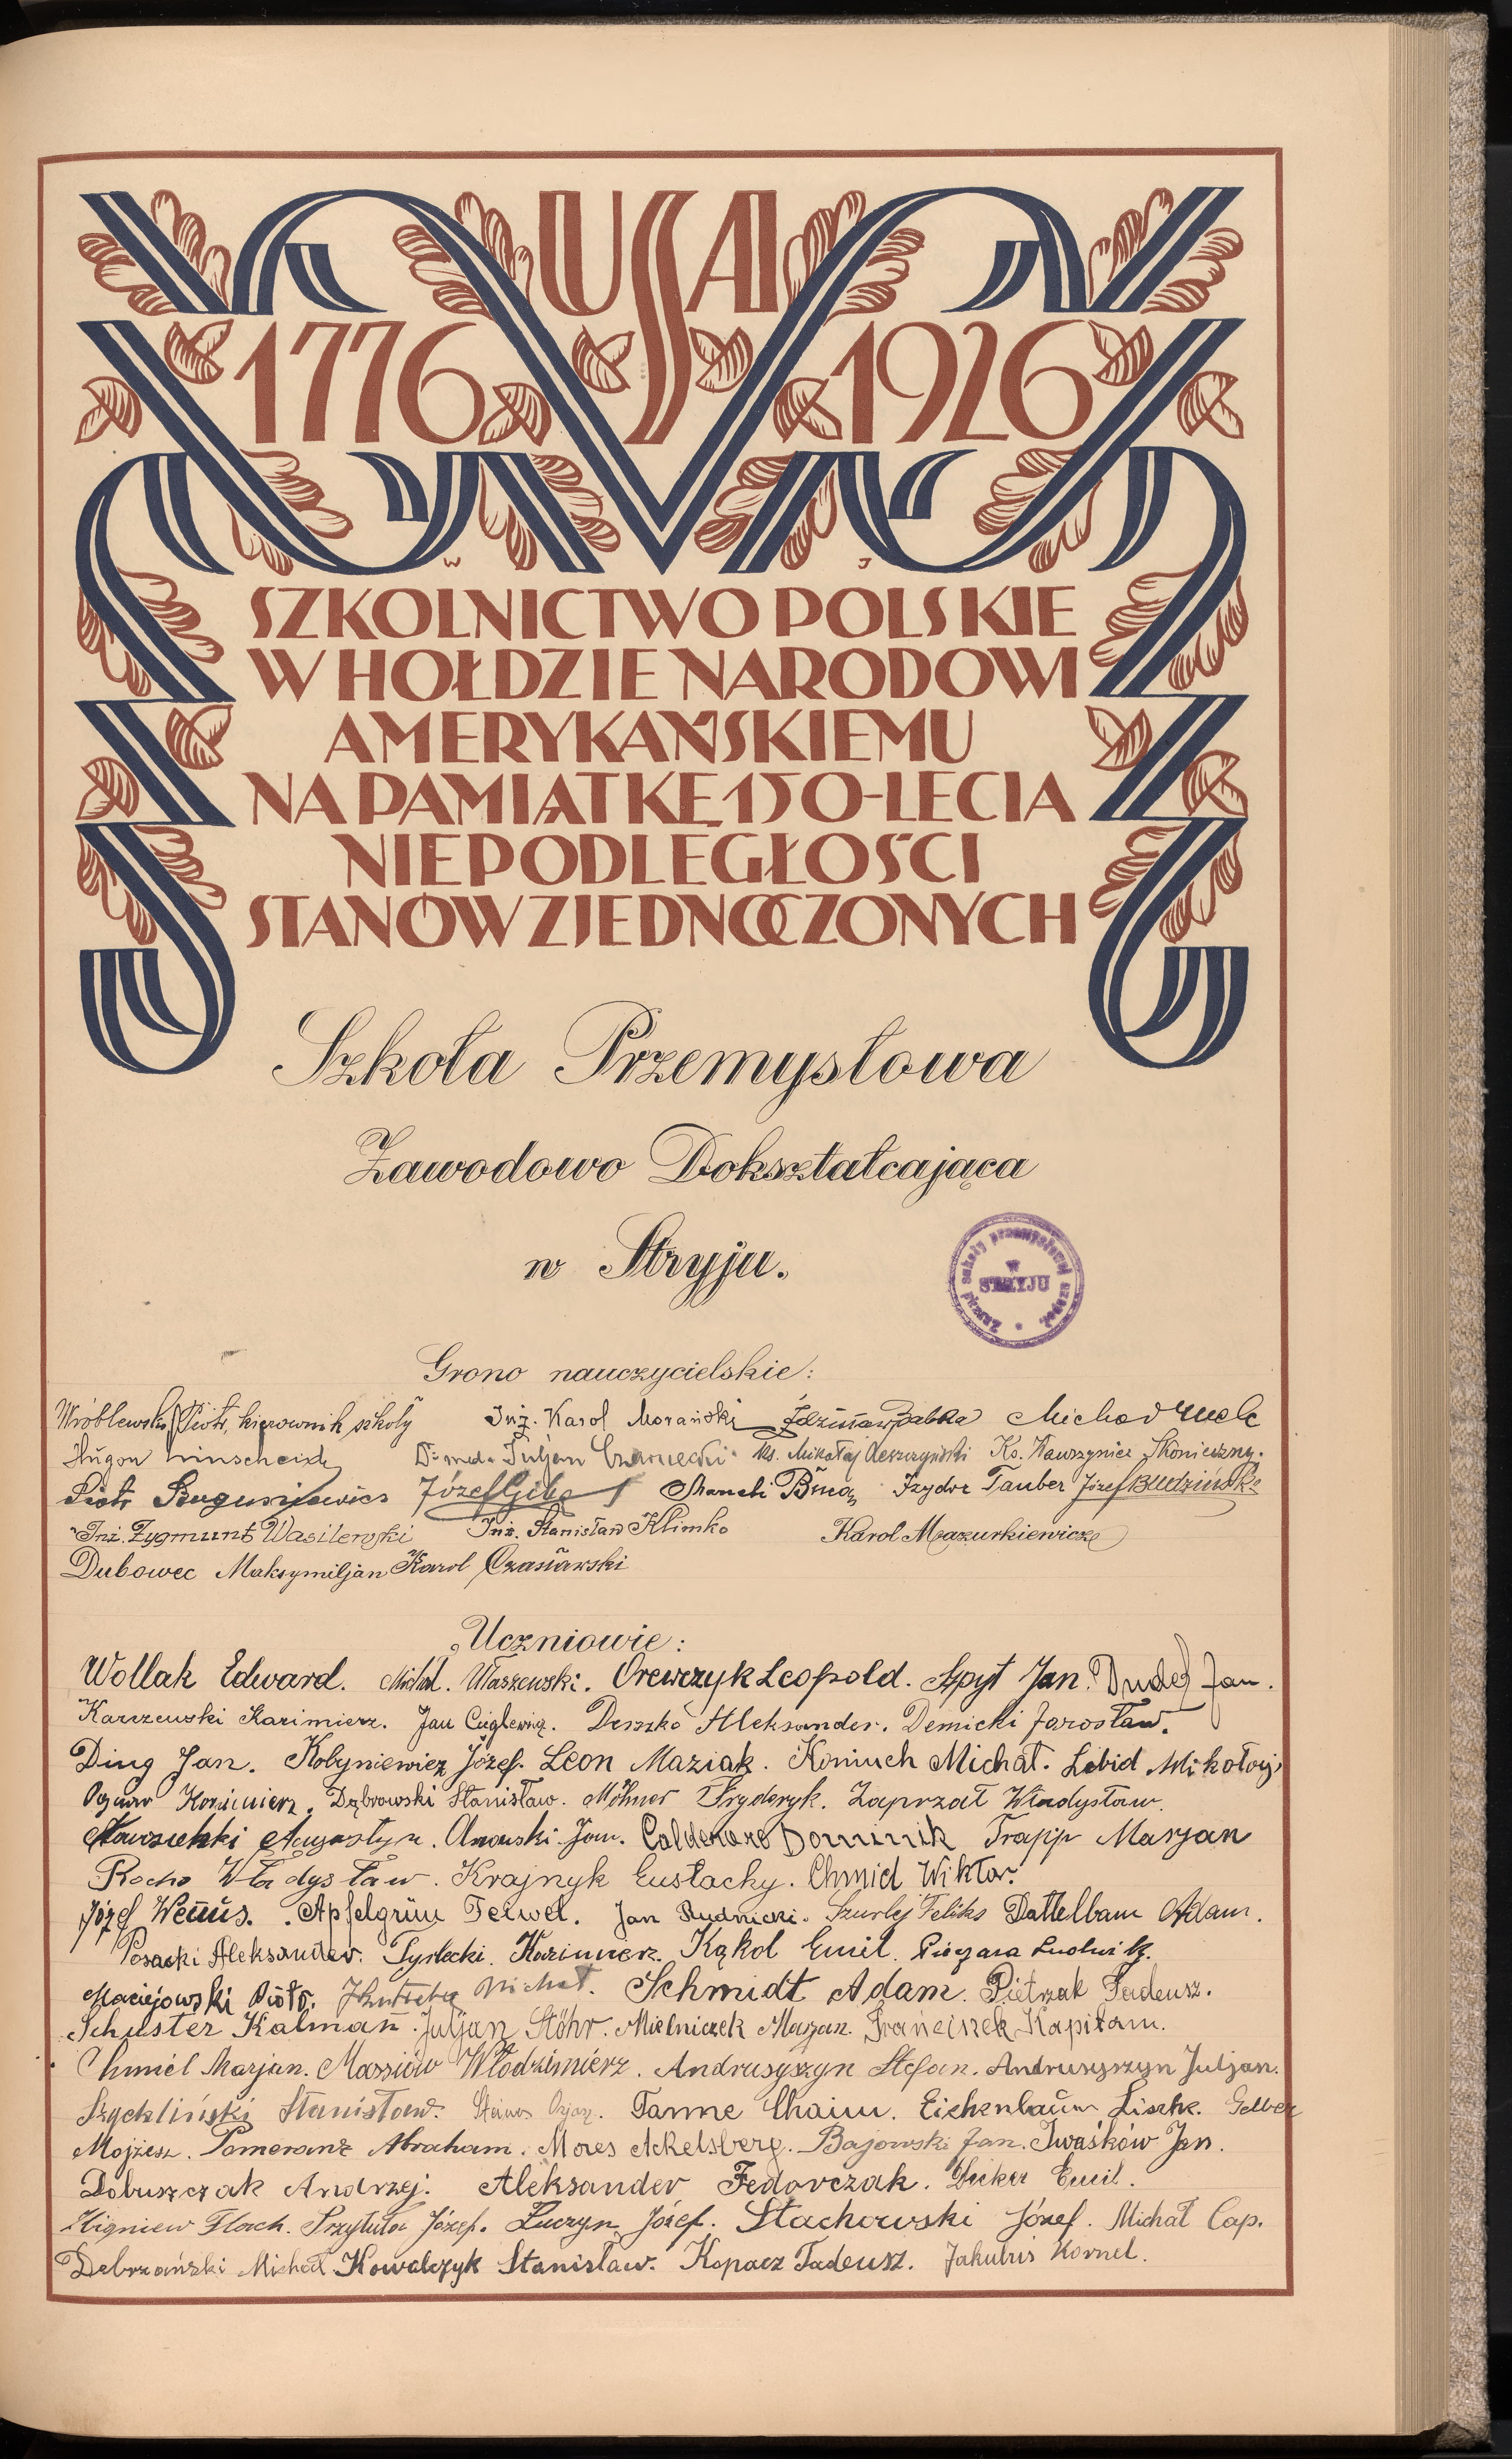 USA
1776 1926
W J
SZKOLNICTWO POLSKIE
W HOŁDZIE NARODOWI
AMERYKAŃSKIEMU
NA PAMIĄTKĘ 150-LECIA
NIEPODLEGŁOŚCI
STANÓW ZJEDNOCZONYCH
Szkoła Przemysłowa
Zawodowo Dokształcająca
w Stryju.
Zarząd szkoły przemysłowej uzupeł.
w
STRYJU
Grono nauczycielskie:
Wróblewski Piotr, kierownik szkoły Inż. Karol Morański
Hugon Dr. med. Juljan Czarnecki Ks. Mikołaj Ks. Wawrzyniec Skonieczny.
Piotr Józef Izydor Tauber Józef Budziński
Inż. Zygmunt Wasilewski Inż. Stanisław Klimko Karol Mazurkiewicz
Dubowec Maksymiljan Karol Czasławski
Uczniowie:
Wollak Edward. Michał. Właszewski. Orewczyk Leopold. Spyt Jan. Dudej Jan.
Karczewski Kazimierz. Jan Aleksander. Demicki Jarosław.
Ding Jan. Kobyniewicz Józef. Leon Maziak. Koniuch Michał. Lebid Mikołaj
Kazimierz. Dąbrowski Stanisław. Möhner Fryderyk. Zaprzał Władysław.
Augustyn. Jan. Calderaro Dominik Trapp Marjan
Rocho Władysław. Krajnyk Eustachy. Chmiel Wiktor.
Józef Wenus. Apfelgrün Feiwel. Jan Rudnicki. Szurlej Feliks Dattelbam Adam.
Posacki Aleksander. Tyrlecki. Kazimierz. Kąkol Emil. Piegara Ludwik.
Maciejowski Piotr. Michał. Schmidt Adam. Pietrzak Tadeusz.
Schuster Kalman. Juljan Stöhr. Mielniczek Marjan. Franciszek Kapitam.
Chmiel Marjan. Massiow Włodzimierz. Andrusyszyn Stefan. Andrusyszyn Juljan.
Szyckliński Stanisław. Tanne Chaim. Eichenbaum Gelber
Mojżesz. Pomeranz Abraham. Mores Ackelsberg. Bajowski Jan. Iwaśków Jan.
Dobuszczak Andrzej. Aleksander Fedorczak. Emil.
Zbigniew Flach. Przytuła Józef. Łuczyn Józef. Stachowski Józef. Michał Cap.
Debrzański Michał Kowalczyk Stanisław. Kopacz Tadeusz. Jakubis Kornel.